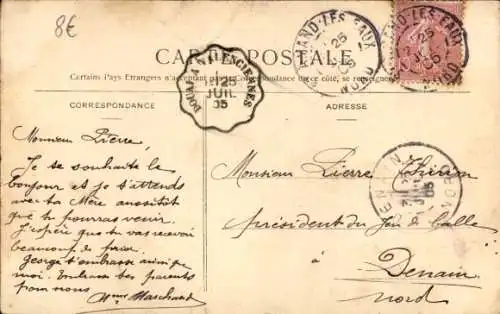 8€
CARTE POSTALE
Certains Pays Etrangers n'acceptant pas la Correspondance de ce côté, se renseigner
CORRESPONDANCE
ADRESSE
St AMAND-LES-EAUX
25
05
NORD
AMAND-LES-EAUX
25
05
NORD
DOUAI A VALENCIENNES
25
JUIL
05
DENAIN
05
NORD
Monsieur Pierre,
Je te souhaite le
bonjour et je t'attends
avec ta Mère aussitôt
que tu pourras venir.
J'espère que tu vas recevoir
beaucoup de
George t'embrasse ainsi que
moi. Embrasse tes parents
pour nous
Mme Marchand
Monsieur Pierre
président du jeu de balle
à
Denain
Nord